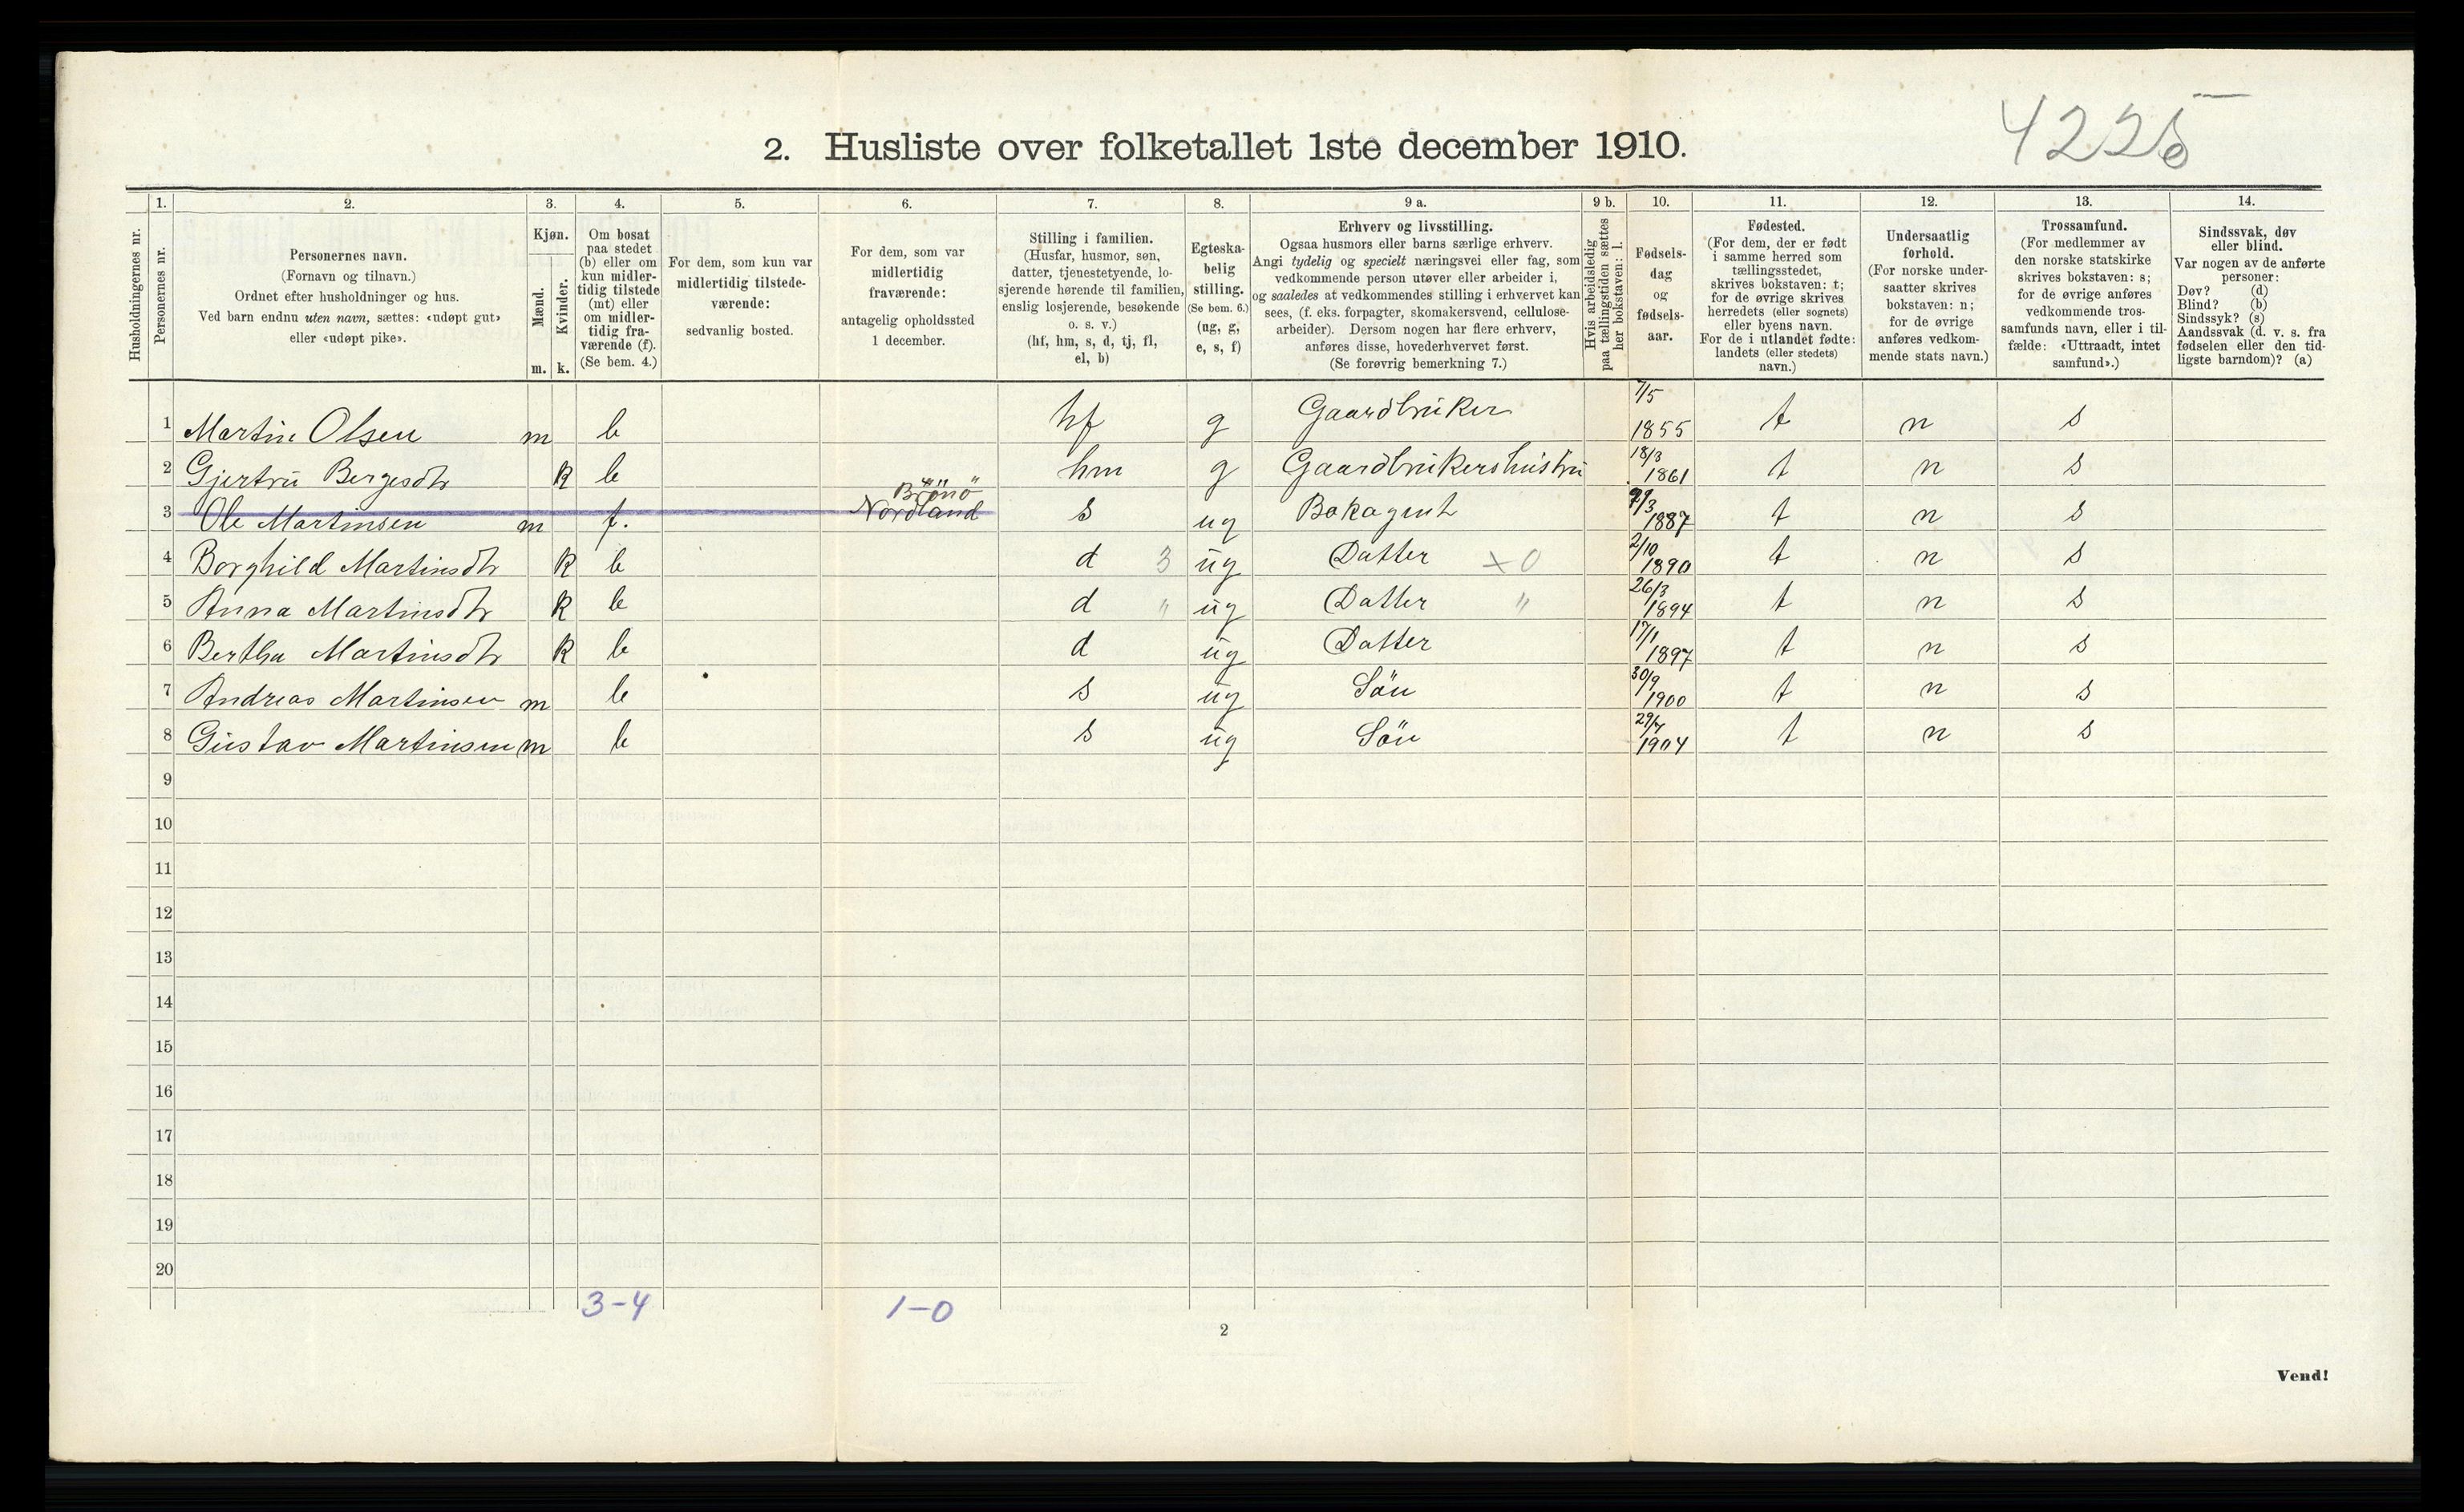 4225
2. Husliste over folketallet 1ste december 1910.
Husholdningernes nr.
1. 2. 3. 4. 5. 6. 7. 8. 9 a. 9 b. 10. 11. 12. 13. 14.
Personernes nr.
Personernes navn.
(Fornavn og tilnavn.)
Ordnet efter husholdninger og hus.
Ved barn endnu uten navn, sættes: «udøpt gut»
eller «udøpt pike».
Kjøn.
Mænd.
Kvinder.
m. k.
Om bosat
paa stedet
(b) eller om
kun midler-
tidig tilstede
(mt) eller
om midler-
tidig fra-
værende (f).
(Se bem. 4.)
For dem, som kun var
midlertidig tilstede-
værende:
sedvanlig bosted.
For dem, som var
midlertidig
fraværende:
antagelig opholdssted
1 december.
Stilling i familien.
(Husfar, husmor, søn,
datter, tjenestetyende, lo-
sjerende hørende til familien,
enslig losjerende, besøkende
o. s. v.)
(hf, hm, s, d, tj, fl,
el, b)
Egteska-
belig
stilling.
(Se bem. 6.)
(ug, g,
e, s, f)
Erhverv og livsstilling.
Ogsaa husmors eller barns særlige erhverv.
Angi tydelig og specielt næringsvei eller fag, som
vedkommende person utøver eller arbeider i,
og saaledes at vedkommendes stilling i erhvervet kan
sees, (f. eks. forpagter, skomakersvend, cellulose-
arbeider). Dersom nogen har flere erhverv,
anføres disse, hovederhvervet først.
(Se forøvrig bemerkning 7.)
Hvis arbeidsledig
paa tællingstiden sættes
her bokstaven: l.
Fødsels-
dag
og
fødsels-
aar.
Fødested.
(For dem, der er født
i samme herred som
tællingsstedet,
skrives bokstaven: t;
for de øvrige skrives
herredets (eller sognets)
eller byens navn.
For de i utlandet fødte:
landets (eller stedets)
navn.)
Undersaatlig
forhold.
(For norske under-
saatter skrives
bokstaven: n;
for de øvrige
anføres vedkom-
mende stats navn.)
Trossamfund.
(For medlemmer av
den norske statskirke
skrives bokstaven: s;
for de øvrige anføres
vedkommende tros-
samfunds navn, eller i til-
fælde: «Uttraadt, intet
samfund».)
Sindssvak, døv
eller blind.
Var nogen av de anførte
personer:
Døv? (d)
Blind? (b)
Sindssyk? (s)
Aandssvak (d. v. s. fra
fødselen eller den tid-
ligste barndom)? (a)
1 Martin Olsen m b hf g Gaardbruker 7/5 1855 t n s
2 Gjertru Bergesdtr k b hm g Gaardbrukershustru 18/3 1861 t n s
3 Ole Martinsen m f. Brönö Nordland s ug Bokagent /3 1887 t n s
4 Borghild Martinsdtr k b d 3 ug Datter x 0 2/10 1890 t n s
5 Anna Martinsdtr k b d " ug Datter " 26/3 1894 t n s
6 Bertha Martinsdtr k b d ug Datter 17/1 1897 t n s
7 Andreas Martinsen m b s ug Sön 30/9 1900 t n s
8 Gustav Martinsen m b s ug Sön 1904 t n s
9
10
11
12
13
14
15
16
17
18
19
20
3-4 1-0
2
Vend!